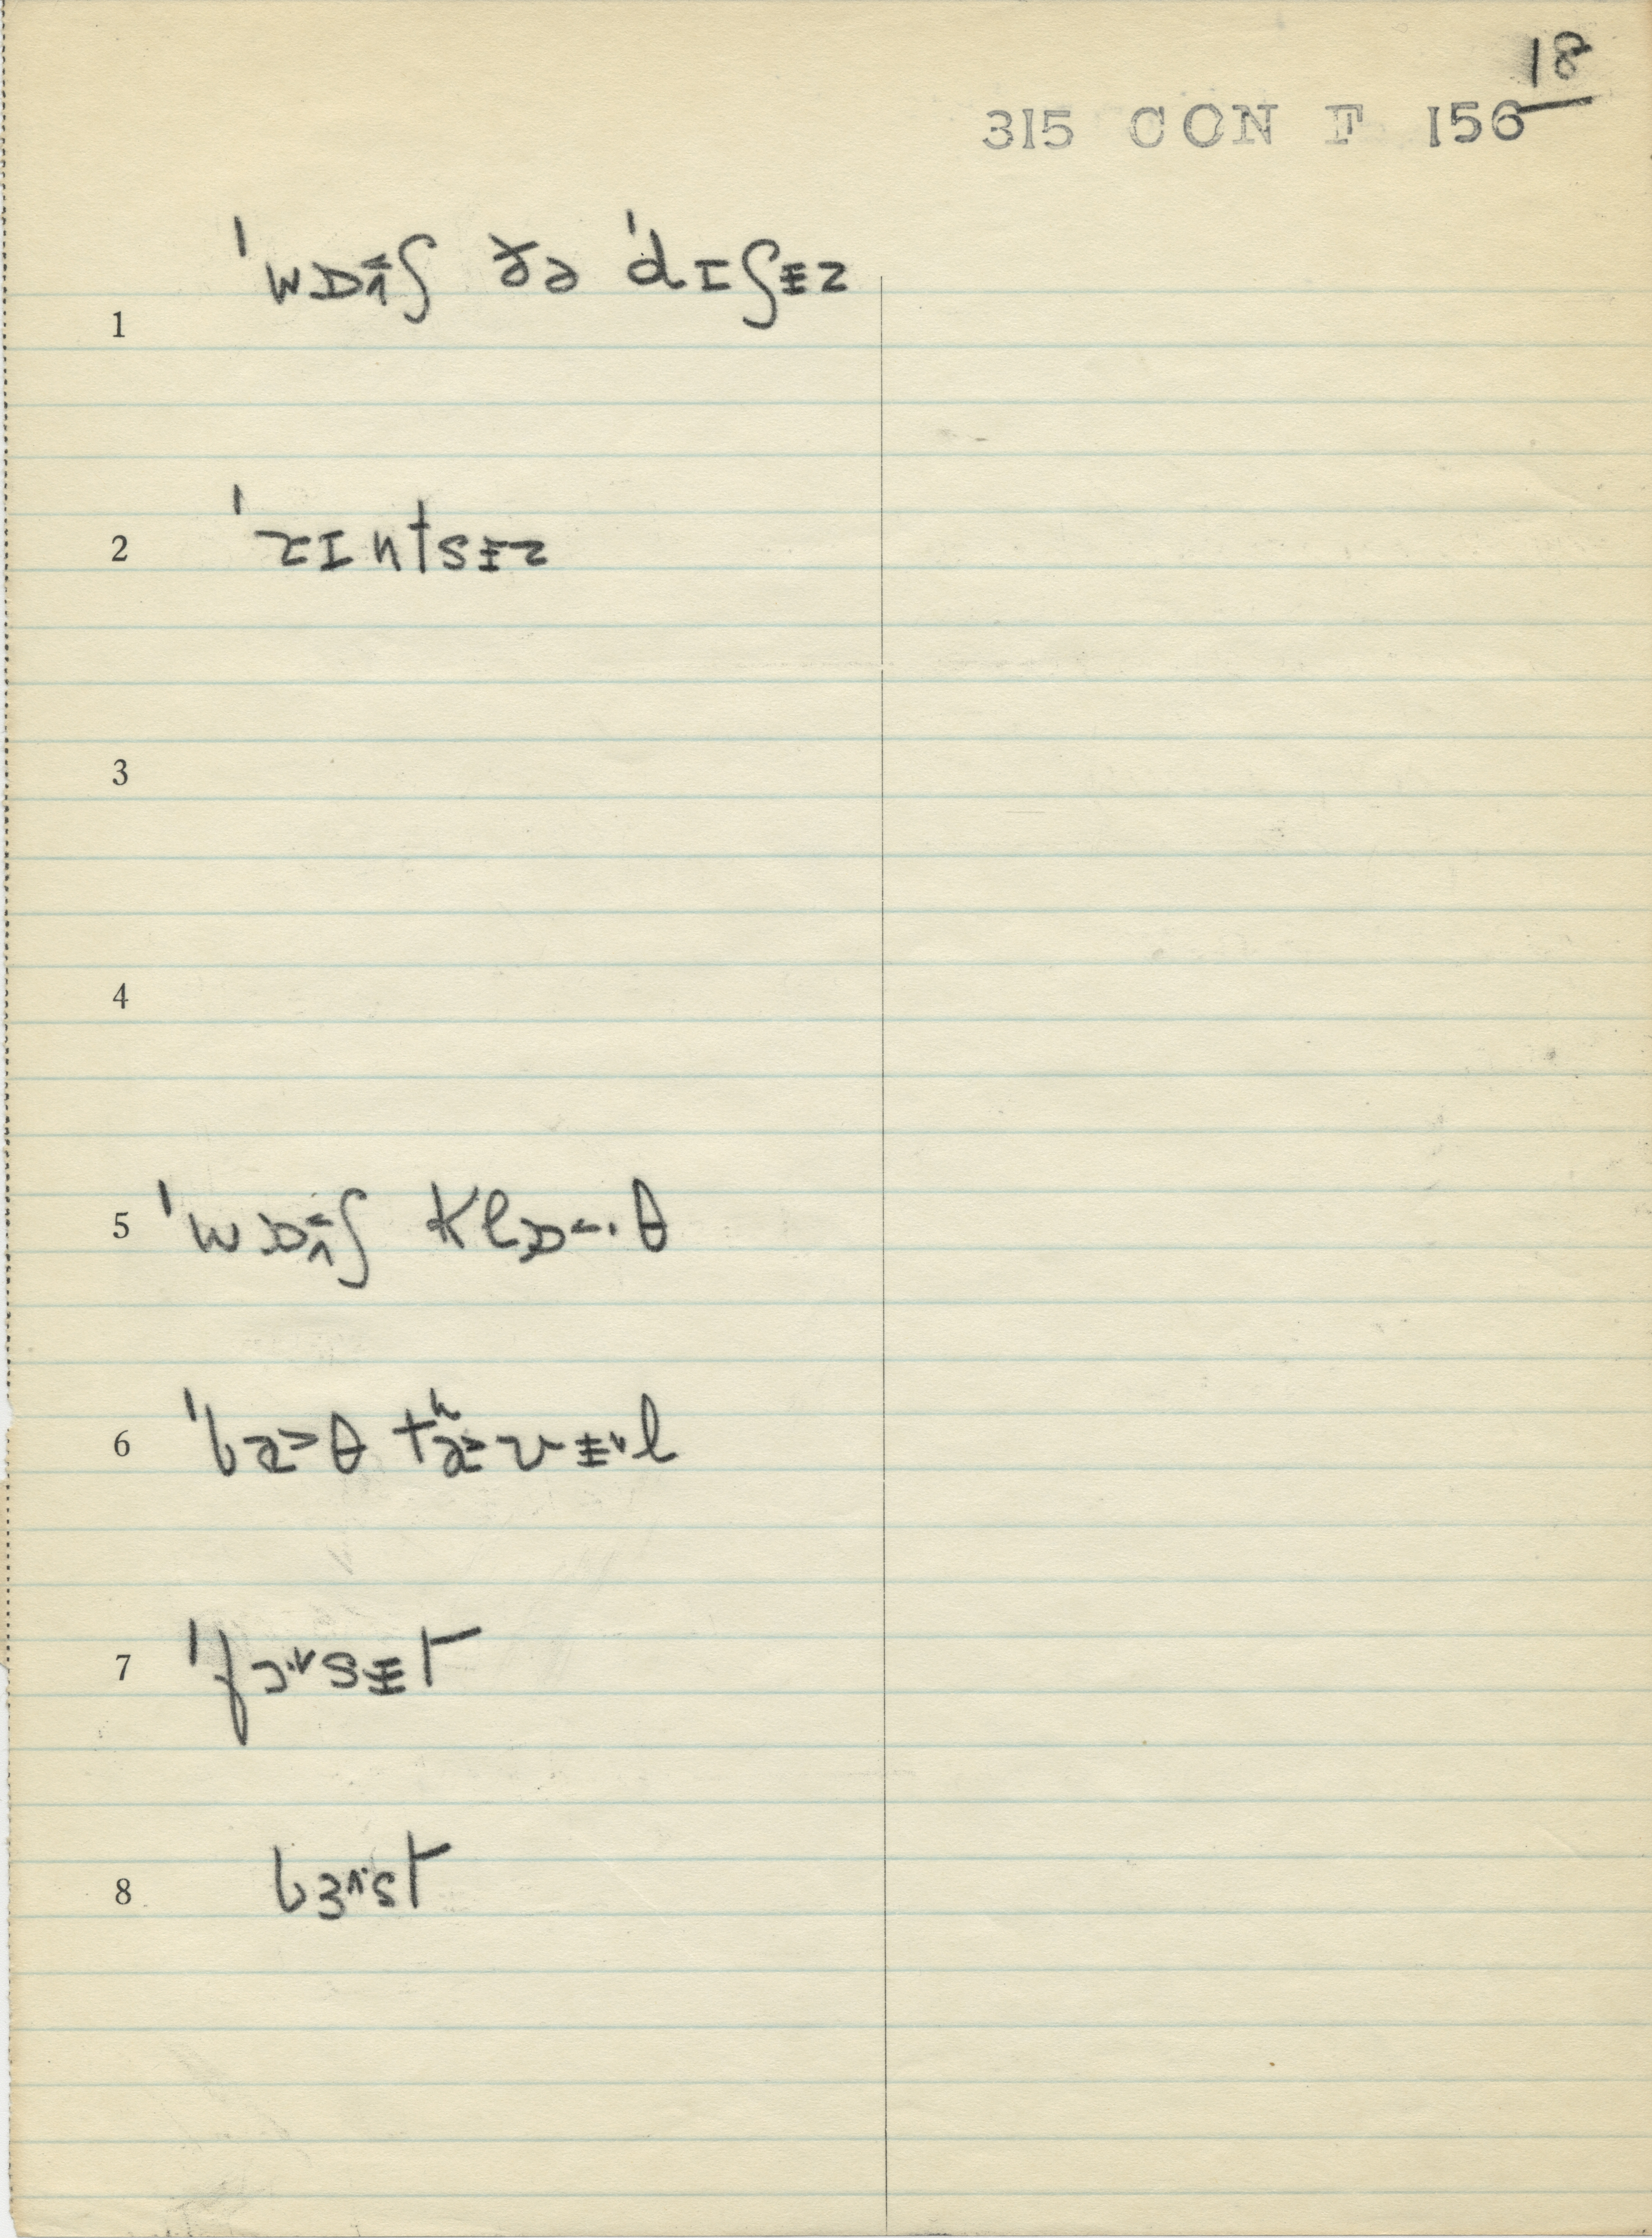 18
315 CON F 156
1 ˈwɒ˂˄ʃ ðə ˈdɪʃɨz
2 ˈrɪntsɨz
3
4
5 ˈwɒ˂˄ʃ klɒ˂·θ
6 ˈbæ>θ tʰæ>vɨ˅l
7 ˈfɔ·˅sɨt
8 bɜ˄·st